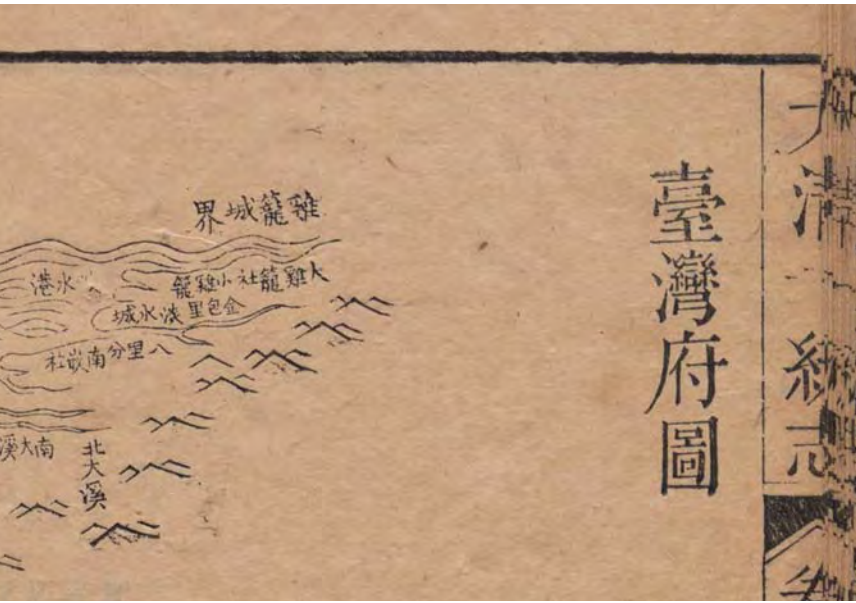 大清一統志
臺灣府圖
雞籠城界
大雞籠社小雞籠
水港
金包里淡水城
八里分南嵌社
南大溪
北大溪